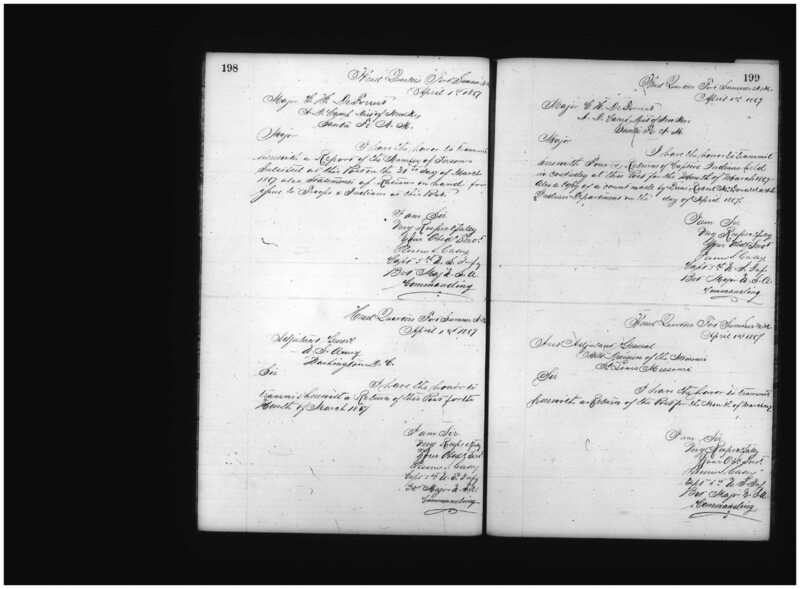 198
Head Quarters Fort Sumner N.M.
April 1st 1867
Major C. H. DeForrest
A. A. Genl
Santa Fe N. M.
Major
I have the honor to transmit
herewith a Report of the Number of
at this Post on the 31st day of March
1867 also Statement of Rations on hand for
issue to Troops & Indians at this Post.
I am Sir
Very Respectfully
Your Obed Servt
Casey
Capt 5th U. S. Infy
Bvt Maj U. S. A.
Commanding
Head Quarters Fort Sumner N.M.
April 1st 1867
Adjutant Genl
U. S. Army
Washington D. C.
Sir
I have the honor to
transmit herewith a Return of this Post for the
Month of March 1867
I am Sir
Very Respectfully
Your Obed Servt
Casey
Capt 5th U. S. Infy
Bvt Major U. S. A.
Commanding
199
Head Quarters Fort Sumner N.M.
April 1st 1867
Major C. H. DeForrest
A. A. Genl
Santa Fe N. M.
Major
I have the honor to transmit
herewith Returns of Captive Indians held
in custody at this Post for the Month of March 1867
also a Copy of a count made by
Indian Department on the day of April 1867.
I am Sir
Very Respectfully
Your Obed Servt
Casey
Capt 5th U. S. Inf.
Bvt Major U. S. A.
Commanding
Head Quarters Fort Sumner N.M.
April 1st 1867
Asst Adjutant General
Division of the Missouri
St Louis Missouri
Sir
I have the honor to transmit
herewith a Return of the Post for the Month of March
I am Sir
Very Respectfully
Your Obt Servt
Casey
Capt 5th U. S. Inf
Bvt Major U. S. A.
Commanding